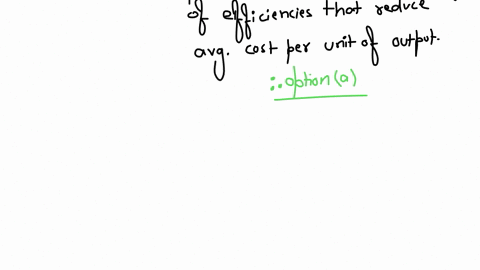 of efficiencies that reduce
avg. cost per unit of output.
∴ option (a)